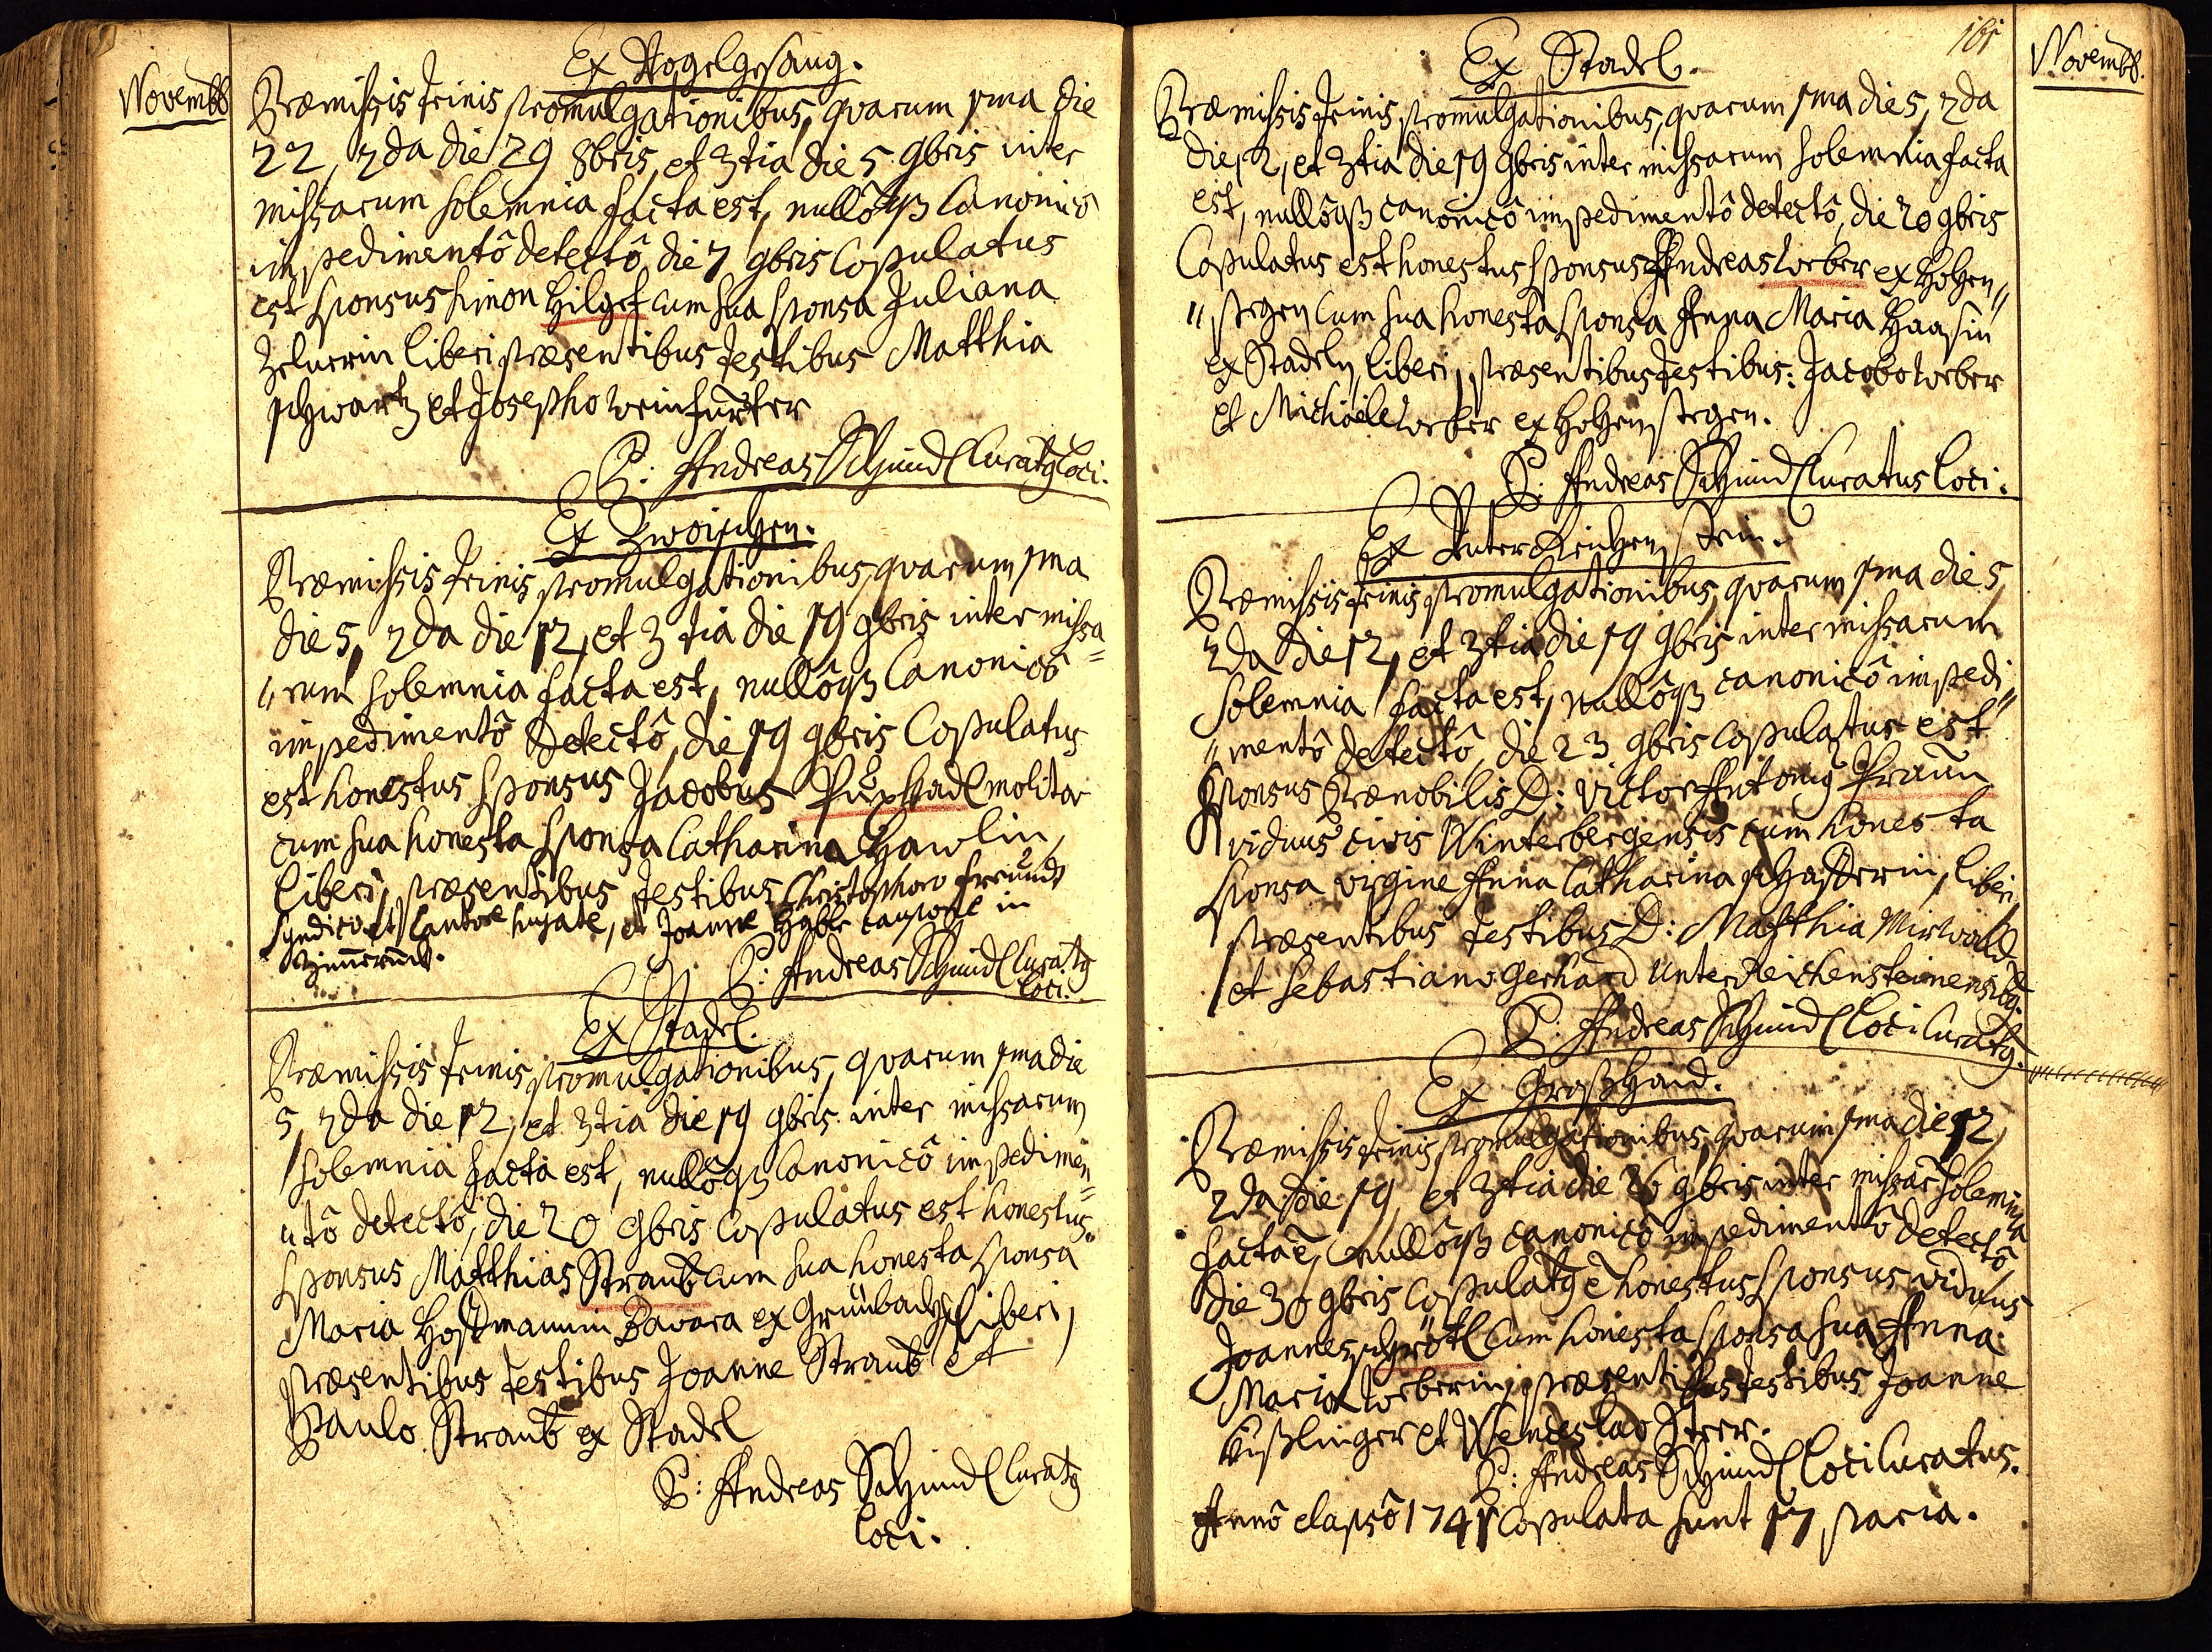 Novembr
Ex Vogelgesang.
Præmissis trinis promulgationibus, quarum 1ma die
22, 2da die 29 8bris, et 3tia die 5 9bris inter
missarum solemnia facta est, nullôqȝ Canonicô
impedimentô detectô, die 7 9bris Copulatus
est sponsus Simon Hilgef cum sua sponsa Juliana
liberi præsentibus testibus Matthia
schwartz et Josepho Weinfurter
P: Andreas Schmidl Curatꝰ Loci.
Ex Zwoischen.
Præmissis trinis promulgationibus, quarum 1ma
die 5, 2da die 12, et 3tia die 19 9bris inter missa=
"rum solemnia facta est, nullôqȝ Canonicô
impedimentô detectô, die 19 9bris Copulatus
est honestus sponsus Jacobus molitor
cum sua honesta sponsa Catharina Hawlin,
liberi, præsentibus testibus Christophoro Freund
syndico et Cantore hujate, et Joanne caupone in

P: Andreas Schmidl Curatꝰ
Loci.
Ex Stadel.
Præmissis trinis promulgationibus, quarum 1ma die
5, 2da die 12, et 3tia die 19 9bris inter missarum
solemnia facta est, nullôqȝ Canonicô impedimen=
"tô detectô, die 20 9bris Copulatus est honestus
sponsus Matthias Straub cum sua honesta sponsa
Maria Bavara ex Grünbach, liberi,
præsentibus testibus Joanne Straub et
Paulo Straub ex Stadel
P: Andreas Schmidl Curatꝰ
Loci.
Novembr.
Ex Stadel.
Præmissis trinis promulgationibus, quarum 1ma die 5, 2da
die 12, et 3tia die 19 9bris inter missarum solemnia facta
est, nullôqȝ canonicô impedimentô detectô, die 20 9bris
Copulatus est honestus sponsus Andreas Weber ex Hohen"
"stegen Cum sua honesta sponsa Anna Maria Haasin
ex Stadeln, liberi, præsentibus testibus: Jacobo Weber
et Michaële Weber ex Hohenstegen.
P: Andreas Schmidl Curatus Loci.
Ex Unter Reichenstein.
Præmissis trinis promulgationibus, quarum 1ma die 5,
2da die 12, et 3tia die 19 9bris inter missarum
Solemnia facta est, nullôqȝ canonicô impedi"
"mentô detectô, die 23 9bris copulatus est
Sponsus Prænobilis D: Victor Antoniꝰ Praun
viduus civis Winterbergensis cum honesta
sponsa virgine Anna Catharina liberi,
præsentibus testibus D: Matthia Mirwald
et Sebastiano Gerhard Unter Reichensteinensibꝰ.
P: Andreas Schmidl Loci Curatꝰ.
Ex Großhaid.
Præmissis trinis promulgationibus, quarum 1ma die 12,
2da die 19, et 3tia die 26 9bris inter missar̄ solemnia
facta ē, nullôqȝ canonicô impedimentô detectô,
die 30 9bris Copulatꝰ ē honestus sponsus viduus
Joannes schrötl Cum honesta sponsa sua Anna
Maria Weberin, præsentibus testibus Joanne
Küßlinger et Wenceslao
P: Andreas Schmidl Loci Curatus.
Annô elapsô 1741 Copulata sunt 17 paria.